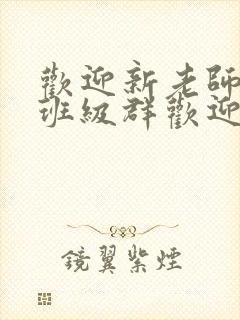 歡迎新老師
班級群歡迎
鏡翼紫煙